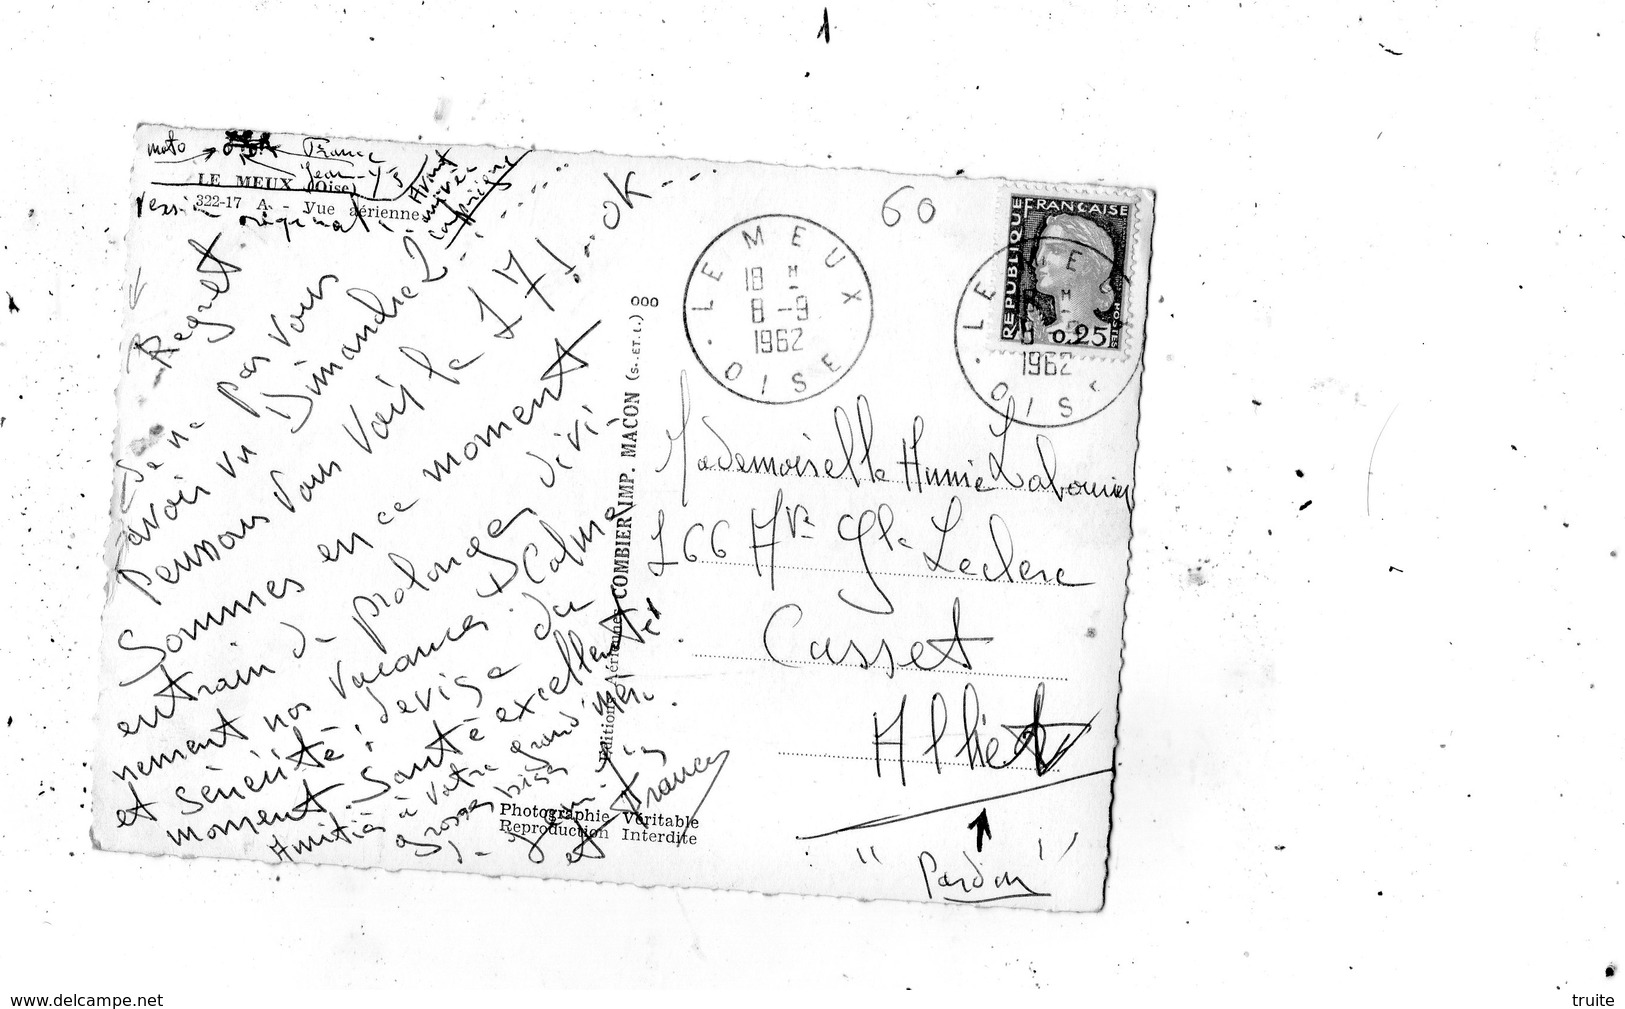 1
moto
France
Jean-Y's
LE MEUX (Oise)
322-17 A. - Vue aérienne
Version original
Avant
arrivée
Regret
de ne pas vous
avoir vu Dimanche 2...
Pensons vous voir le 17!...OK...
Sommes en ce moment
entrain de prolonger
nement nos vacances. Calme
et sérénité: devise du
moment. Santé excellente
Amitiés à votre grand'mère
grosses bises
Jean-
et France
Editions Aériennes COMBIER IMP. MACON (S.-ET-L.) ooo
Photographie Véritable
Reproduction Interdite
60
LE MEUX
18 H
8-9
1962
OISE
REPUBLIQUE FRANÇAISE
POSTES
0,25
LE MEUX
1962
OISE
Mademoiselle Annie
166 Ave Gl. Leclerc
Cusset
Allier
"Pardon"
www.delcampe.net
truite